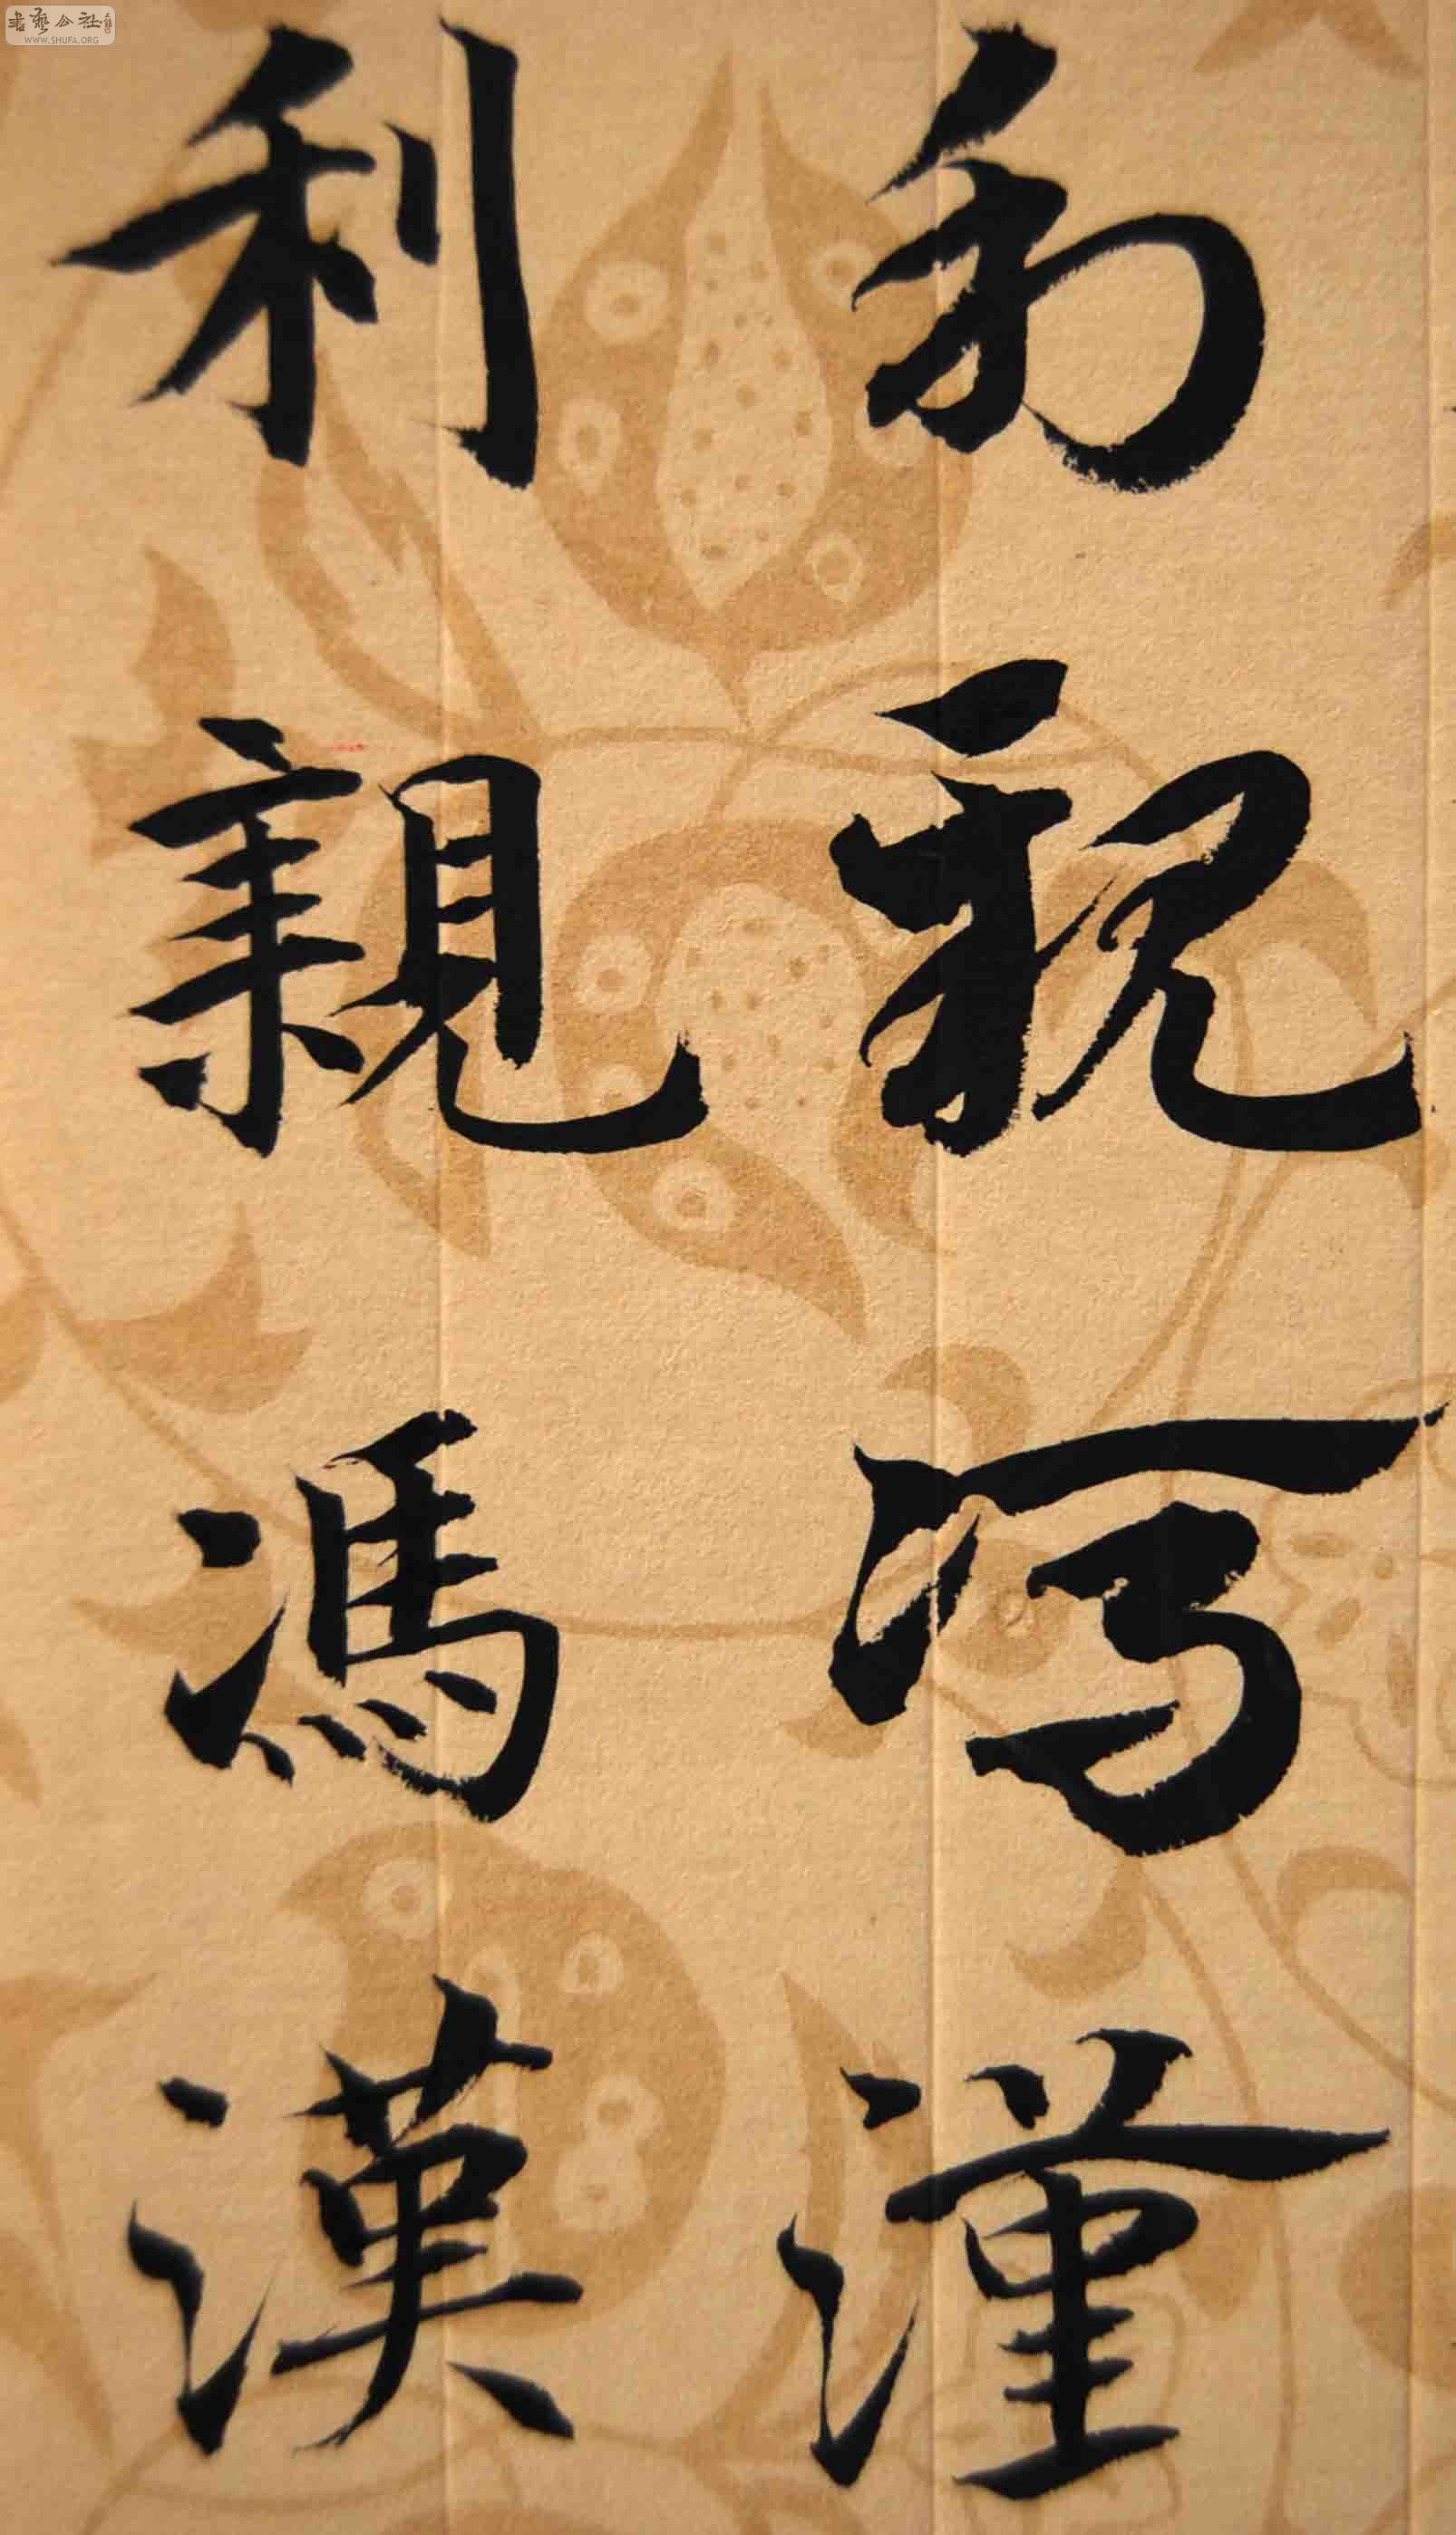 利親馮漢
利親馮漢
書藝公社
WWW.SHUFA.ORG